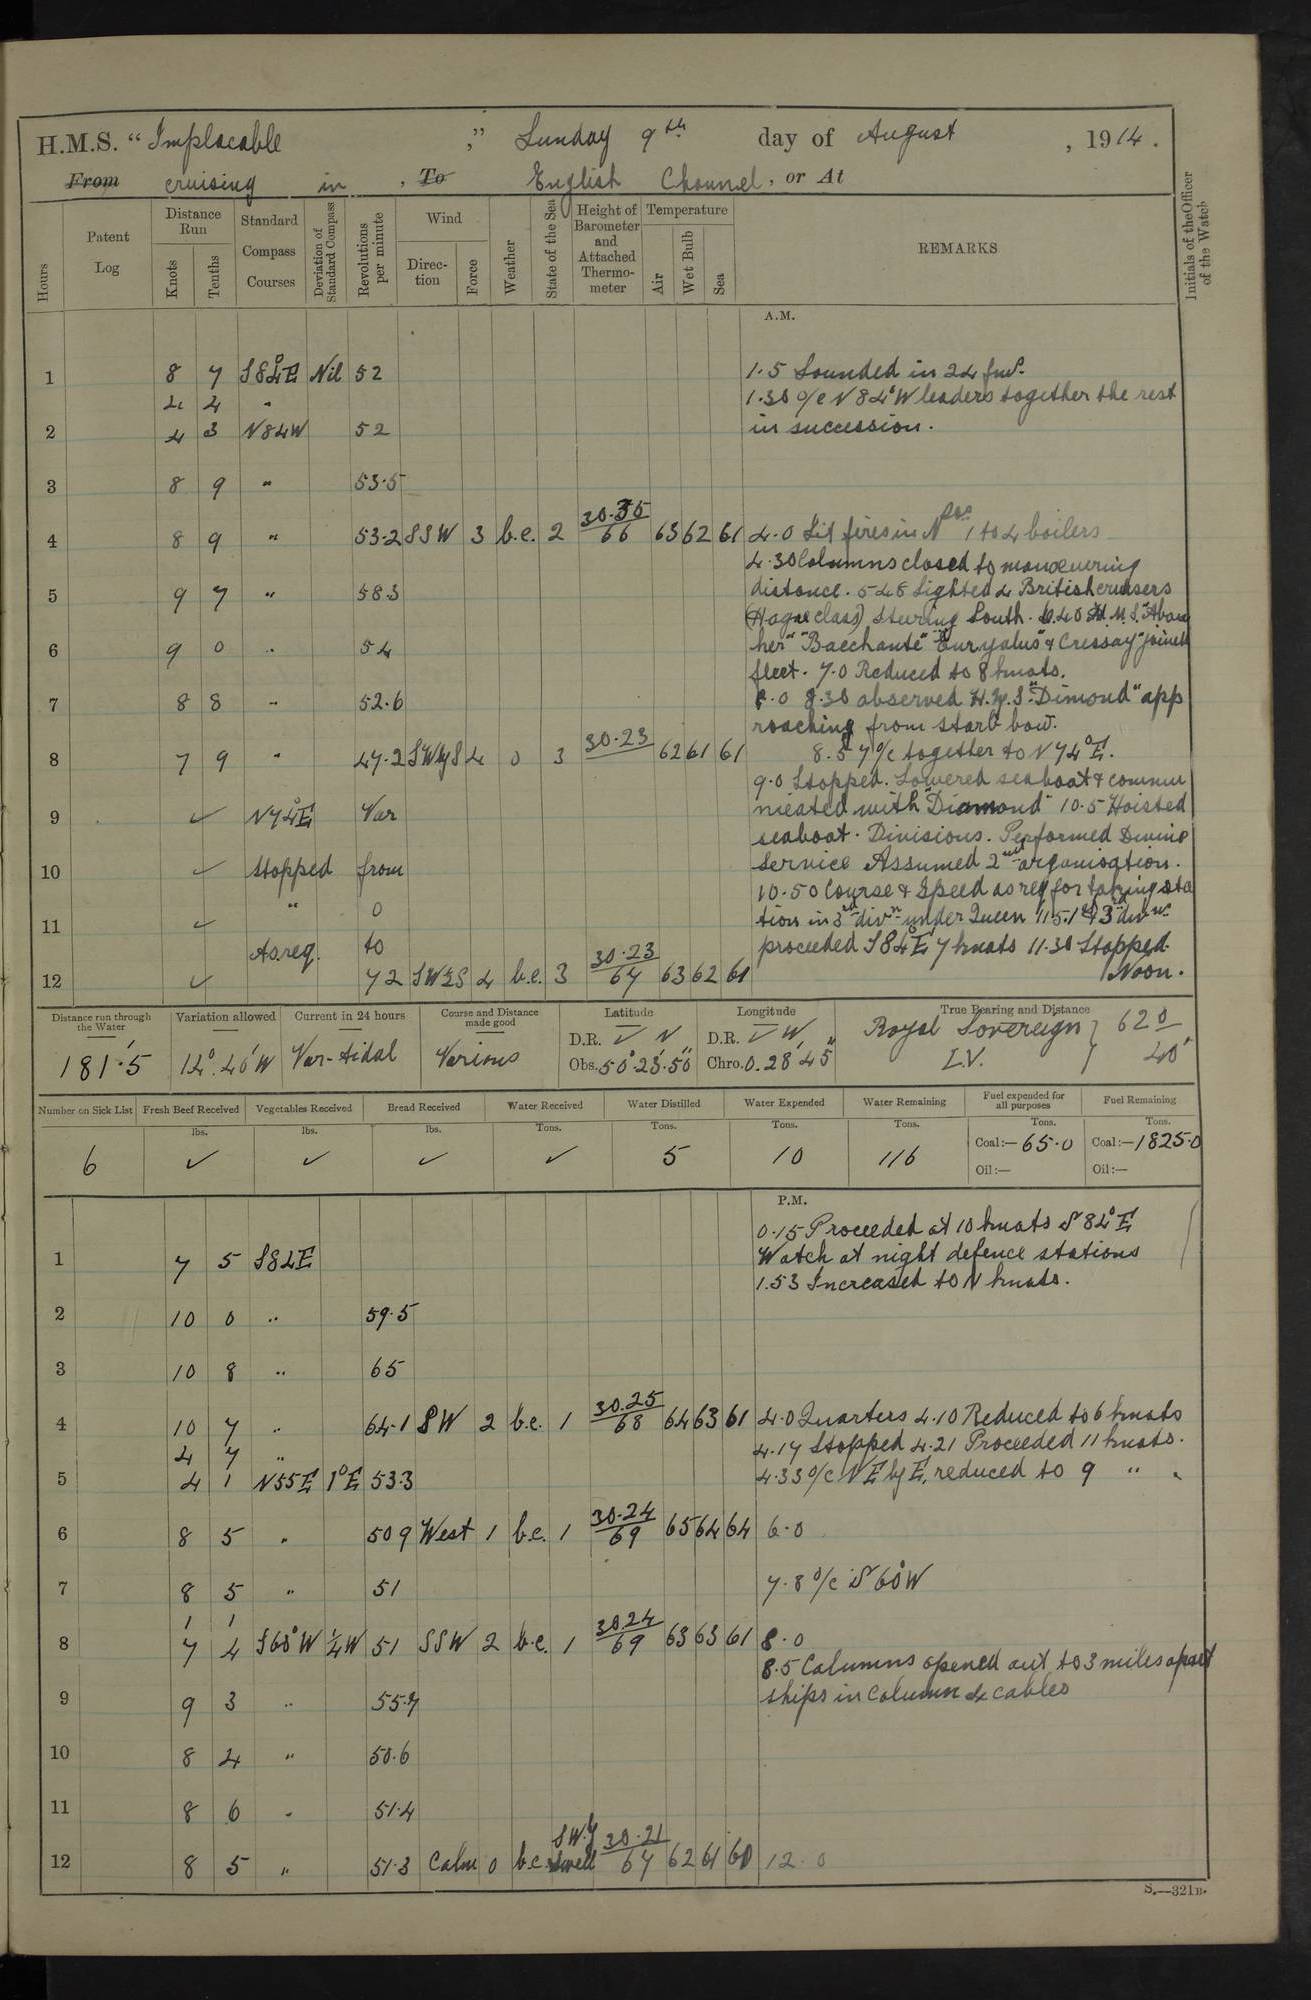 H.M.S. "Implacable ," Sunday 9th day of August , 1914.
From cruising in , To English Channel, or At
Hours
Patent Log
Distance Run
Knots
Tenths
Standard Compass Courses
Deviation of Standard Compass
Revolutions per minute
Wind
Direction
Force
Weather
State of the Sea
Height of Barometer and Attached Thermometer
Temperature
Air
Wet Bulb
Sea
REMARKS
Initials of the Officer of the Watch
A.M.
1 8 7 S84°E Nil 52 1.5 Sounded in 24 fms.
4 4 " 1.30 a/c N84°W leaders together the rest
2 4 3 N84W 52 in succession.
3 8 9 " 53.5
4 8 9 " 53.2 SSW 3 b.c. 2 30.35/66 63 62 61 4.0 Lit fires in Nos 1 to 4 boilers
4.30 Columns closed to manœuvring
5 9 7 " 58.3 distance. 5.48 Sighted 4 British cruisers
(Hogue class) Steering South. 6.40 H.M.S. "Abou
6 9 0 " 54 her" "Bacchante" "Euryalus" & Cressay" joined
fleet. 7.0 Reduced to 8 knots.
7 8 8 " 52.6 8.0 8.30 observed H.M.S. "Dimond" app
roaching from starbd bow.
8 7 9 " 47.2 SWbyS 4 o 3 30.23 62 61 61 8.57 a/c together to N74°E.
9.0 Stopped. Lowered seaboat & commu
9 ✓ N74°E Var nicated with "Diamond" 10.5 Hoisted
seaboat. Divisions. Performed Divine
10 ✓ Stopped from Service Assumed 2nd organisation.
10.50 Course & Speed as req for taking sta
11 ✓ " 0 tion in 3rd divn under Queen 11.5 1st & 3rd divns
As req. to proceeded S84°E 7 knots 11.30 Stopped.
12 ✓ 72 SW½S 4 b.c. 3 30.23/67 63 62 61 Noon.
Distance run through the Water
Variation allowed
Current in 24 hours
Course and Distance made good
Latitude
Longitude
True Bearing and Distance
181.5 12°.40'W Var-tidal Various D.R. ✓ N D.R. ✓ W Royal Sovereign } 62°
Obs. 50°.23'.50" Chro. 0.28'.45" L.V. 40'
Number on Sick List
Fresh Beef Received
Vegetables Received
Bread Received
Water Received
Water Distilled
Water Expended
Water Remaining
Fuel expended for all purposes
Fuel Remaining
lbs. lbs. lbs. Tons. Tons. Tons. Tons. Tons. Tons.
6 ✓ ✓ ✓ ✓ 5 10 116 Coal:— 65.0 Coal:— 1825.0
Oil:— Oil:—
P.M.
0.15 Proceeded at 10 knots S84°E
1 7 5 S84E Watch at night defence stations
1.53 Increased to 11 knots.
2 10 0 " 59.5
3 10 8 " 65
4 10 7 " 64.1 SW 2 b.c. 1 30.25/68 64 63 61 4.0 Quarters 4.10 Reduced to 6 knots
4 7 " 4.17 Stopped 4.21 Proceeded 11 knots.
5 4 1 N55E 1°E 53.3 4.33 a/c NEbyE, reduced to 9 " "
6 8 5 " 50.9 West 1 b.c. 1 30.24/69 65 64 64 6.0
7 8 5 " 51 7.8 a/c S60°W
1 1
8 7 4 S60°W ¼W 51 SSW 2 b.c. 1 30.24/69 63 63 61 8.0
8.5 Columns opened out to 3 miles apart
9 9 3 " 55.7 ships in column 4 cables
10 8 4 " 50.6
11 8 6 " 51.4
12 8 5 " 51.3 Calm 0 b.c. SW.y Swell 30.21/67 62 61 60 12.0
S.—321B.